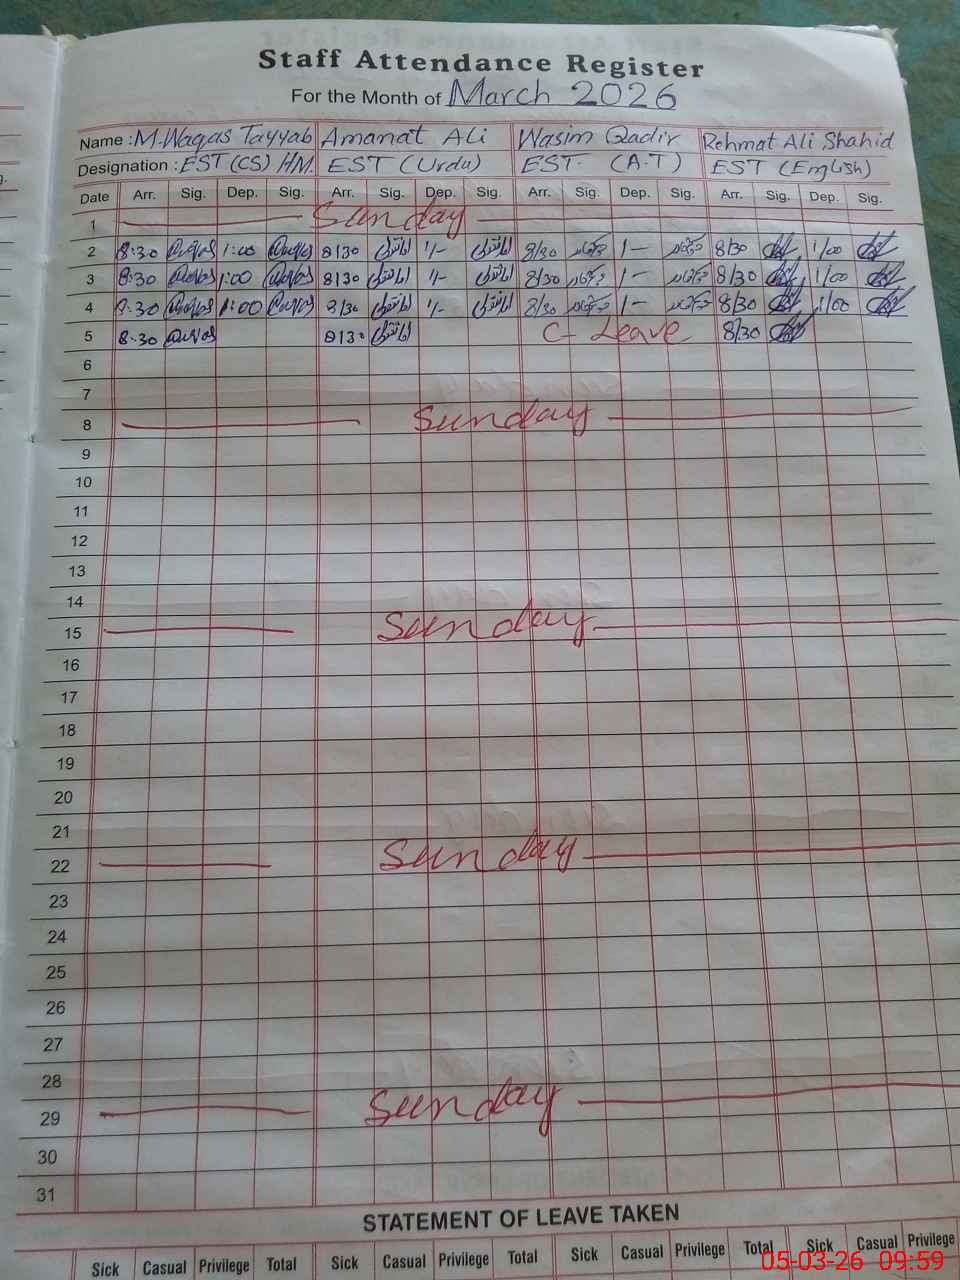 Staff Attendance Register
For the Month of March 2026
Name : M. Waqas Tayyab Amanat Ali Wasim Qadir Rehmat Ali Shahid
Designation : EST (CS) HM. EST (Urdu) EST. (A.T) EST (English)
Date Arr. Sig. Dep. Sig. Arr. Sig. Dep. Sig. Arr. Sig. Dep. Sig. Arr. Sig. Dep. Sig.
1 Sunday
2 8:30 1:00 8/30 1/- 8/30 1- 8/30 1/00
3 8:30 1:00 8/30 1/- 8/30 1- 8/30 1/00
4 8:30 1:00 8/30 1/- 8/30 1- 8/30 1/00
5 8:30 8/30 C- Leave 8/30
6
7
8 Sunday
9
10
11
12
13
14
15 Sunday
16
17
18
19
20
21
22 Sunday
23
24
25
26
27
28
29 Sunday
30
31
STATEMENT OF LEAVE TAKEN
Sick Casual Privilege Total Sick Casual Privilege Total Sick Casual Privilege Total Sick Casual Privilege
05-03-26 09:59